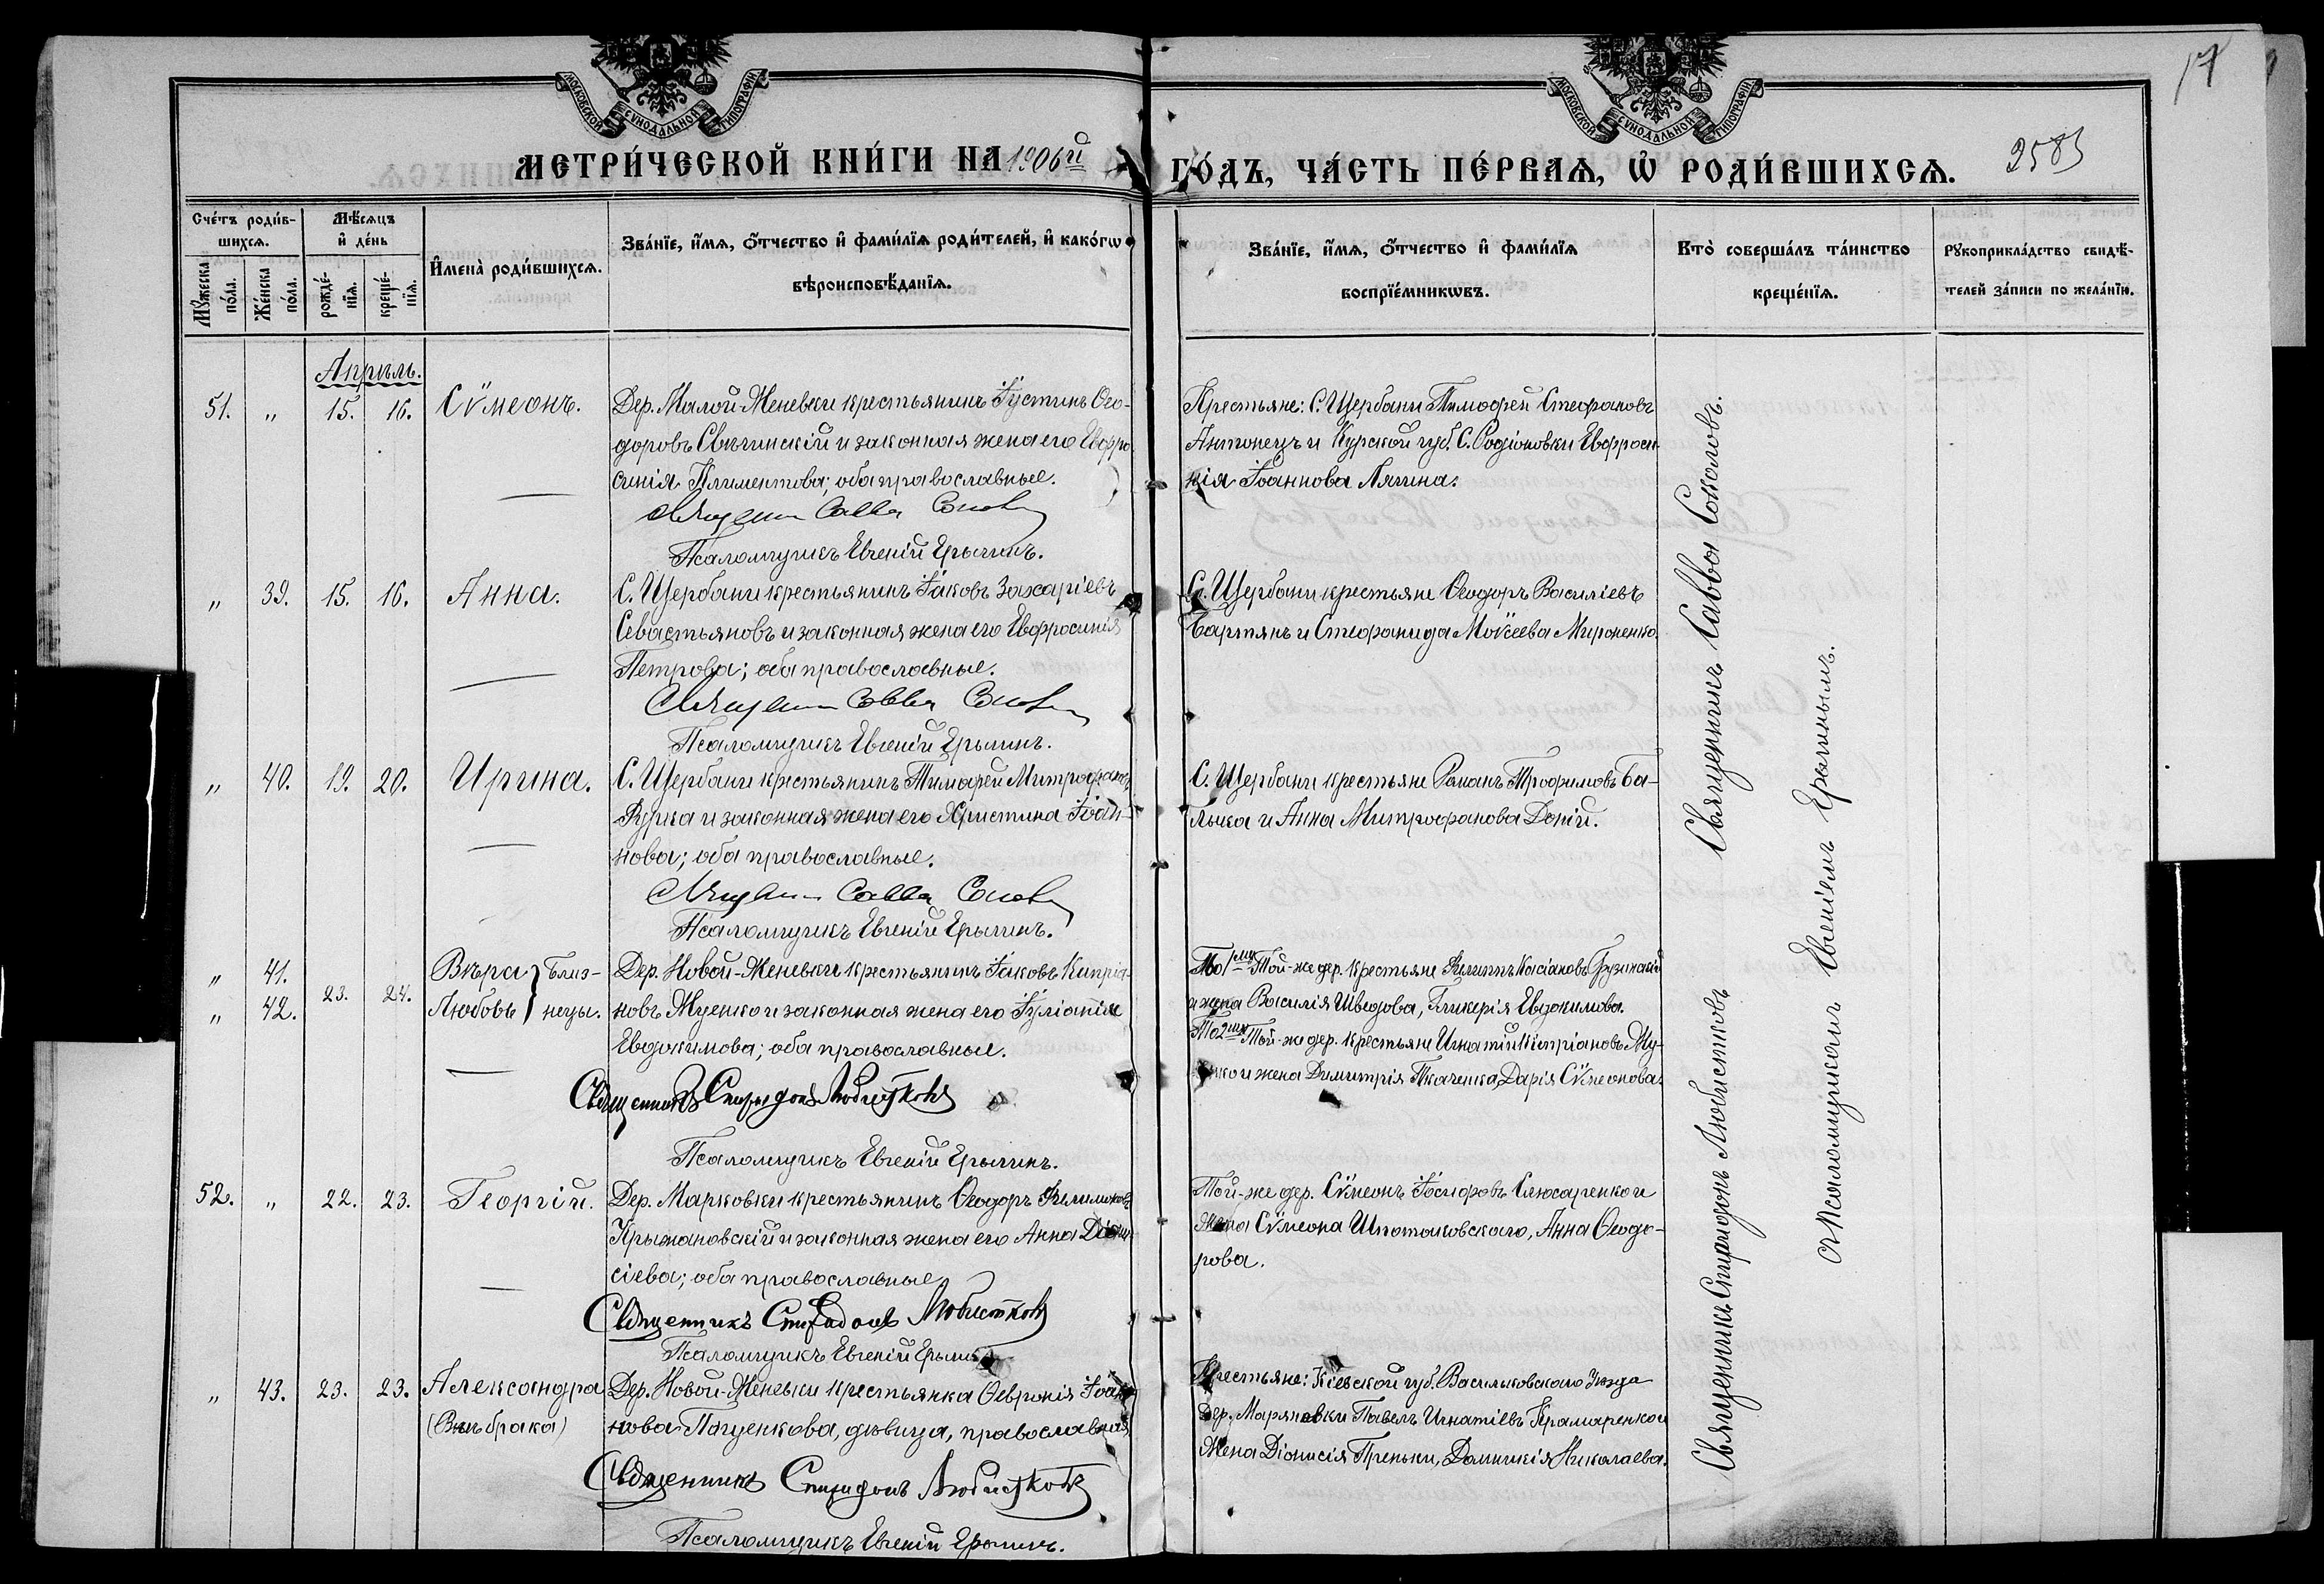 17
МОСКОВСКОЙ СУНОДАЛЬНОЙ ТИПОГРАФІИ
МОСКОВСКОЙ СУНОДАЛЬНОЙ ТИПОГРАФІИ
МЕТРИ́ЧЕСКОЙ КНИ́ГИ НА 1906й
ГО́ДЪ, ЧА́СТЬ ПЕ́РВАѦ, Ѡ РОДИ́ВШИХСѦ.
2583
Сче́тъ роди́в-
шихсѧ.
Мꙋ́жеска по́ла.
Же́нска по́ла.
Мѣ́сѧцъ
и҆ де́нь
рожде́-нїѧ.
креще́-нїѧ.
И҆мена̀ роди́вшихсѧ.
Зва́нїе, и҆́мѧ, ѻ҆́тчество и҆ фами́лїѧ роди́телей, и҆ како́гѡ
вѣроисповѣ́данїѧ.
Зва́нїе, и҆́мѧ, ѻ҆́тчество и҆ фами́лїѧ
воспрїе́мникѡвъ.
Кто̀ соверша́лъ та́инство
креще́нїѧ.
Рꙋкоприкла́дство свидѣ́-
телей за́писи по жела́нїю.
Апрѣль.
51. „ 15. 16. Сѵмеонъ.
Дер. Малой-Меневки крестьянинъ Іустинъ Ѳео-
доровъ Свѣчинскій и законная жена его Евфро
синія Климентова; оба православные.
Священникъ Савва Соколовъ
Псаломщикъ Евгеній Ерыгинъ.
Крестьяне: С. Щербани Тимофей Стефановъ
Антонецъ и Курской губ. С. Родіоновки Евфроси-
нія Іоаннова Лягина.
„ 39. 15. 16. Анна.
С. Щербани крестьянинъ Іаковъ Захаріевъ
Севастьяновъ и законная жена его Евфросинія
Петрова; оба православные.
Священникъ Савва Соколовъ
Псаломщикъ Евгеній Ерыгинъ.
С. Щербани крестьяне Ѳеодоръ Василіевъ
и Стефанида Моѵсеева Мироненко.
„ 40. 19. 20. Ирина.
С. Щербани крестьянинъ Тимофей Митрофановъ
и законная жена его Христина Іоан-
нова; оба православные.
Священникъ Савва Соколовъ
Псаломщикъ Евгеній Ерыгинъ.
С. Щербани крестьяне Романъ Трофимовъ Ба-
лыка и Анна Митрофанова Доній.
„ 41. Вѣра } Близ-
„ 42. 23. 24. Любовь } нецы.
Дер. Новой-Меневки крестьянинъ Іаковъ Кипріа-
новъ Муенко и законная жена его Іуліанія
Евдокимова; оба православные.
Священникъ Спиридонъ Любистковъ
Псаломщикъ Евгеній Ерыгинъ.
По 1мъ Той-же дер. крестьяне Филиппъ Касіановъ Грузинскій
и жена Василія Шведова, Гликерія Евдокимова.
По 2мъ Той-же дер. крестьяне Игнатій Кипріановъ Му-
енко и жена Димитрія Ткаченка, Дарія Сѵмеонова.
52. „ 22. 23. Георгій.
Дер. Марковки крестьянинъ Ѳеодоръ Филимоновъ
Крыжановскій и законная жена его Анна Діони-
сіева; оба православные
Священникъ Спиридонъ Любистковъ
Псаломщикъ Евгеній Ерыгинъ
Той-же дер. Сѵмеонъ Іосифовъ Слюсаренко и
жена Сѵмеона Шпотаковскаго, Анна Ѳеодо-
рова.
„ 43. 23. 23. Александра
(Внѣ брака)
Дер. Новой-Меневки крестьянка Ѳевронія Іоан-
нова Пащенкова, дѣвица, православная
Священникъ Спиридонъ Любистковъ
Псаломщикъ Евгеній Ерыгинъ.
Крестьяне: Кіевской губ. Васильковскаго уѣзда
Дер. Маряновки Павелъ Игнатіевъ Крамаренко и
жена Діонисія Преньки, Домникія Николаева.
Священникъ Савва Соколовъ.
Священникъ Спиридонъ Любистковъ
съ Псаломщикомъ Евгеніемъ Ерыгинымъ.